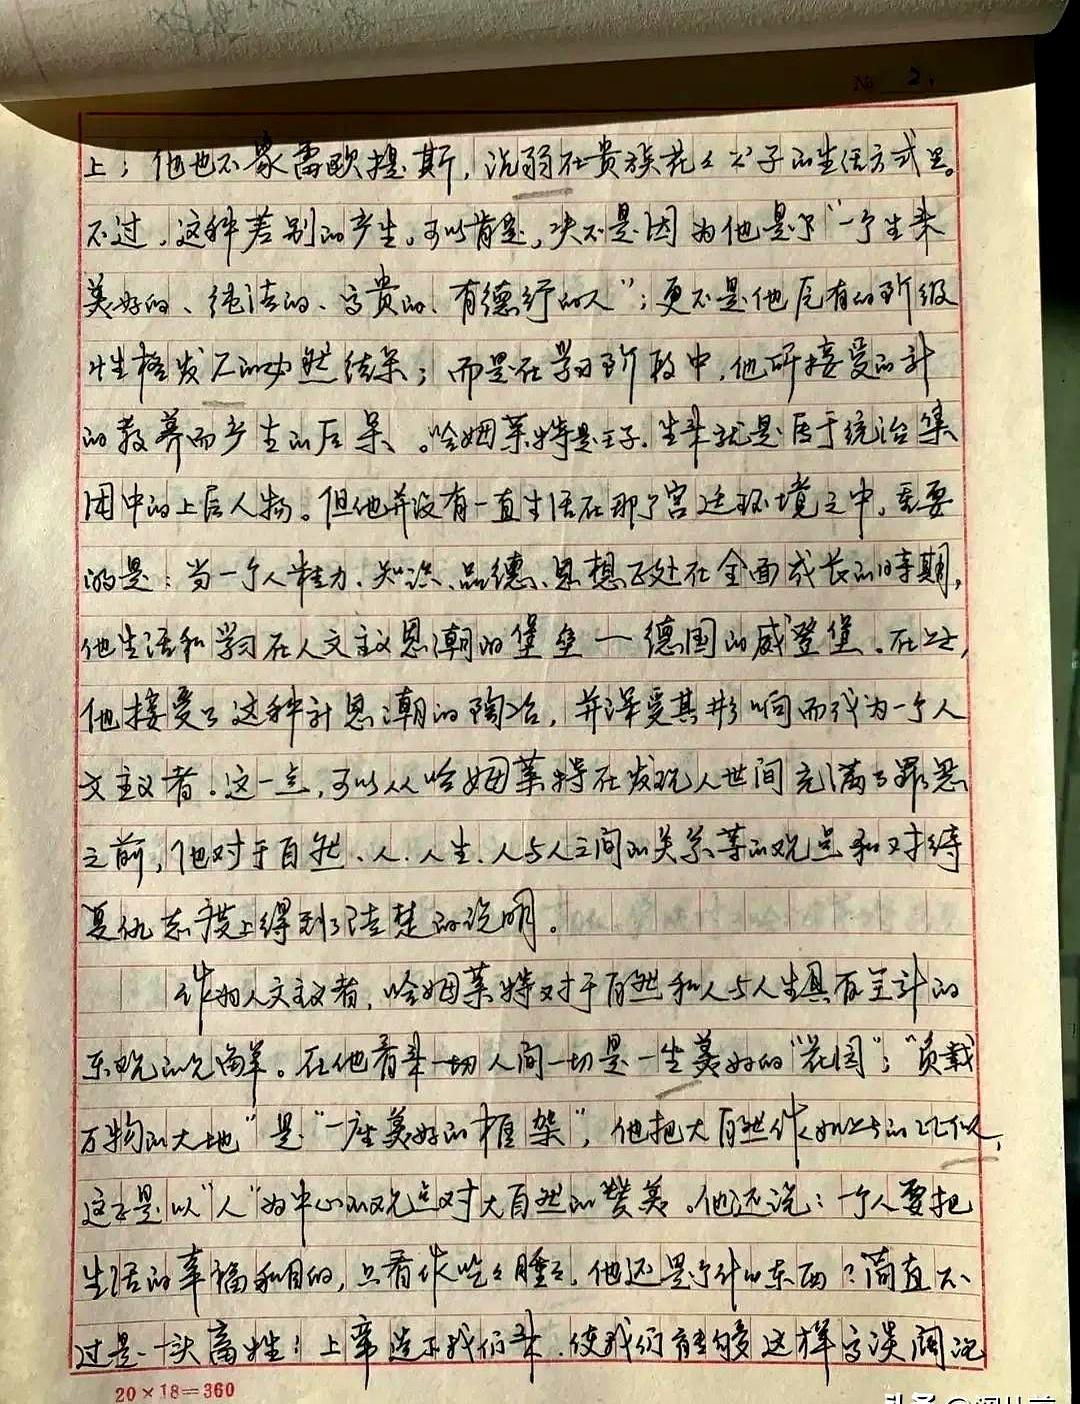 No 2.
上；他也不象雷欧提斯，沉弱在贵族花々公子的生活方式里。
不过，这种差别的产生，可以肯定，决不是因为他是个“一个生来
美好的、纯洁的、高贵的、有德行的人”；更不是他固有的阶级
性格发展的必然结果；而是在学习阶段中，他所接受的新
的教养而产生的后果。哈姆莱特是王子，生来就是居于统治集
团中的上层人物。但他并没有一直生活在那个宫廷环境之中，重要
的是：当一个人精力、知识、品德、思想正处在全面成长的时期，
他生活和学习在人文主义思潮的堡垒—德国的威登堡。在这，
他接受了这种新思潮的陶冶，并深受其影响而成为一个人
文主义者。这一点，可以从哈姆莱特在发现人世间充满了罪恶
之前，他对于自然、人、人生、人与人之间的关系等的观点和对待
复仇态度上得到了清楚的说明。
作为人文主义者，哈姆莱特对于自然和人与人生具有全新的
乐观的见解。在他看来一切人间一切是一座美好的“花园”；“负载
万物的大地”是“一座美好的框架”，他把大自然作如此的比似，
这正是以“人”为中心的观点对大自然的赞美。他还说：一个人要把
生活的幸福和目的，只看作吃々睡々，他还是个什么东西？简直不
过是一头畜牲！上帝造下我们来，使我们能够这样高谈阔论
20×18=360